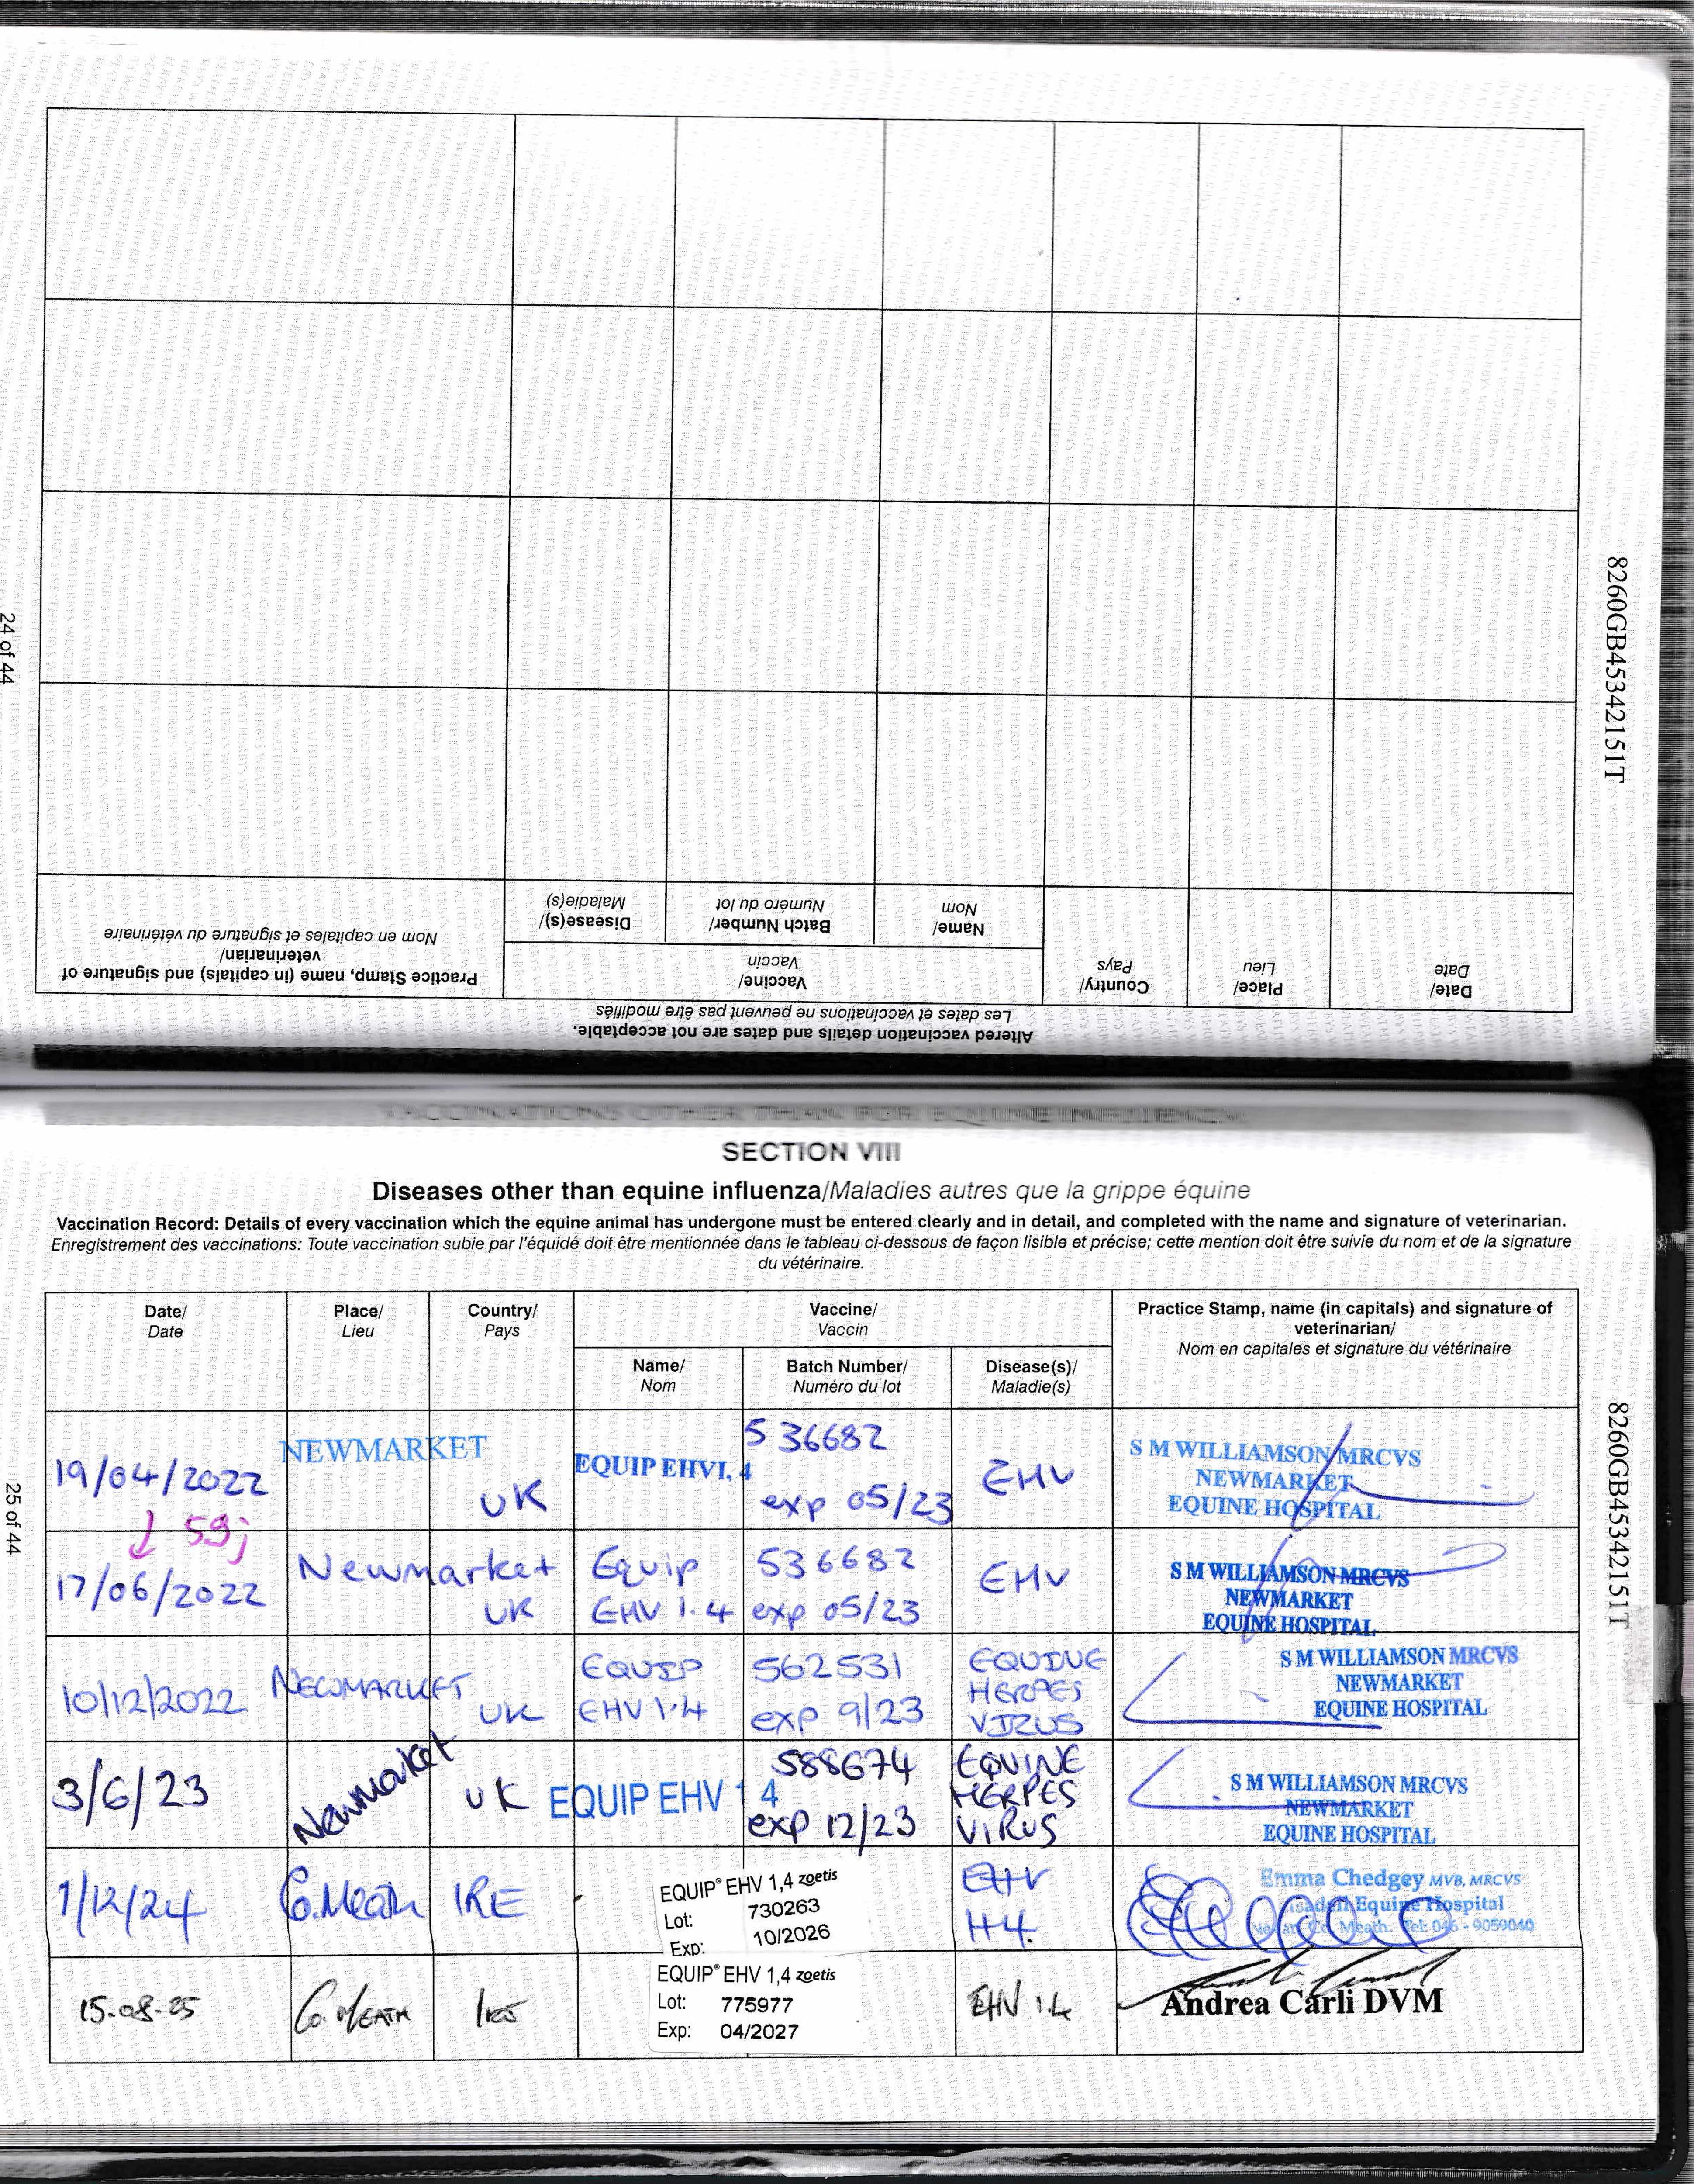 24 of 44
8260GB45342151T
Altered vaccination details and dates are not acceptable.
Les dates et vaccinations ne peuvent pas être modifiés
Date/
Date
Place/
Lieu
Country/
Pays
Vaccine/
Vaccin
Name/
Nom
Batch Number/
Numéro du lot
Disease(s)/
Maladie(s)
Practice Stamp, name (in capitals) and signature of
veterinarian/
Nom en capitales et signature du vétérinaire
VACCINATIONS OTHER THAN FOR EQUINE INFLUENZA
SECTION VIII
Diseases other than equine influenza/Maladies autres que la grippe équine
Vaccination Record: Details of every vaccination which the equine animal has undergone must be entered clearly and in detail, and completed with the name and signature of veterinarian.
Enregistrement des vaccinations: Toute vaccination subie par l'équidé doit être mentionnée dans le tableau ci-dessous de façon lisible et précise; cette mention doit être suivie du nom et de la signature
du vétérinaire.
Date/
Date
Place/
Lieu
Country/
Pays
Vaccine/
Vaccin
Name/
Nom
Batch Number/
Numéro du lot
Disease(s)/
Maladie(s)
Practice Stamp, name (in capitals) and signature of
veterinarian/
Nom en capitales et signature du vétérinaire
19/04/2022
NEWMARKET
UK
EQUIP EHV1, 4
536682
exp 05/23
EHV
S M WILLIAMSON MRCVS
NEWMARKET
EQUINE HOSPITAL
↓ 59j
17/06/2022
Newmarket
UK
Equip
EHV 1.4
536682
exp 05/23
EHV
S M WILLIAMSON MRCVS
NEWMARKET
EQUINE HOSPITAL
10/12/2022
NEWMARKET
UK
EQUIP
EHV 1.4
562531
exp 9/23
EQUINE
HERPES
VIRUS
S M WILLIAMSON MRCVS
NEWMARKET
EQUINE HOSPITAL
3/6/23
Newmarket
UK
EQUIP EHV 1 4
588674
exp 12/23
EQUINE
HERPES
VIRUS
S M WILLIAMSON MRCVS
NEWMARKET
EQUINE HOSPITAL
1/12/24
Co.Meath
IRE
EQUIP® EHV 1,4 zoetis
Lot: 730263
Exp: 10/2026
EHV
1+4.
Emma Chedgey MVB, MRCVS
Equine Hospital
Co. Meath. Tel: 046 - 9059040
15-08-25
Co. MEATH
EQUIP® EHV 1,4 zoetis
Lot: 775977
Exp: 04/2027
EHV 1.4
Andrea Carli DVM
25 of 44
8260GB45342151T